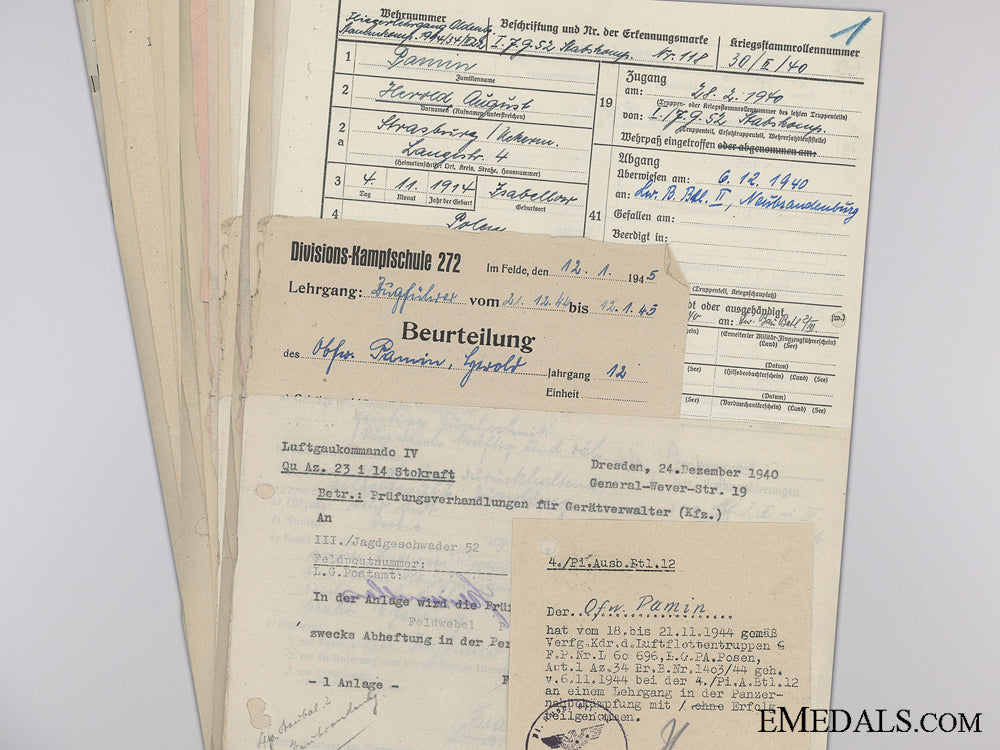 Wehrnummer
Beschriftung und Nr. der Erkennungsmarke
Kriegsstammrollennummer
1
I. J.G. 52 Stabskomp. Nr. 118
30/II/40
1
Pamin
Familienname
2
Herold, August
Vornamen (Rufnamen unterstreichen)
2
a
Strasburg / Uckerm.
Langestr. 4
(Heimatanschrift: Ort, Kreis, Straße, Hausnummer)
3
4. 11. 1914
Tag Monat Jahr der Geburt
Geburtsort
4
Polen
19
Zugang
am: 28. 2. 1940
(Truppen- oder Kriegsstammrollennummer des letzten Truppenteils)
von: I./J.G. 52 Stabskomp.
(Truppenteil, Ersatztruppenteil, Wehrersatzdienststelle)
Wehrpaß eingetroffen oder abgenommen am:
Abgang
Überwiesen am: 6. 12. 1940
41
an: Lw. B. Btl. II, Neubrandenburg
Gefallen am:
Beerdigt in:
(Truppenteil, Kriegsschauplatz)
dt oder ausgehändigt
an:
(Erweiterter Militär-Flugzeugführerschein)
(Land) (See)
(Datum)
(See)
(Hilfsbeobachterschein) (Land) (See)
(Datum)
(See)
(Bordmechanikerschein) (Land) (See)
Divisions-Kampfschule 272
Im Felde, den 12. 1. 1945
Lehrgang: Zugführer vom 21. 12. 44 bis 12. 1. 45
Beurteilung
des Obfw. Pamin, Herold Jahrgang 12
Einheit
Luftgaukommando IV
Qu Az. 23 i 14 Stokraft
Dresden, 24.Dezember 1940
General-Wever-Str. 19
Betr.: Prüfungsverhandlungen für Gerätverwalter (Kfz.)
An
III./Jagdgeschwader 52
Feldpostnummer:
L.G.Postamt:
In der Anlage wird die Prü
Feldwebel
zwecks Abheftung in der Per
- 1 Anlage -
4./Pi.Ausb.Btl.12
Der Ofw. Pamin
hat vom 18.bis 21.11.1944 gemäß
Verfg.Kdr.d.Luftflottentruppen 6
F.P.Nr.L 60 696,L.G.PA.Posen,
Abt.1 Az.34 Br.B.Nr.1403/44 geh.
v.6.11.1944 bei der 4./Pi.A.Btl.12
an einem Lehrgang in der Panzer-
nahbekämpfung mit / ohne Erfolg
teilgenommen.
EMEDALS.COM